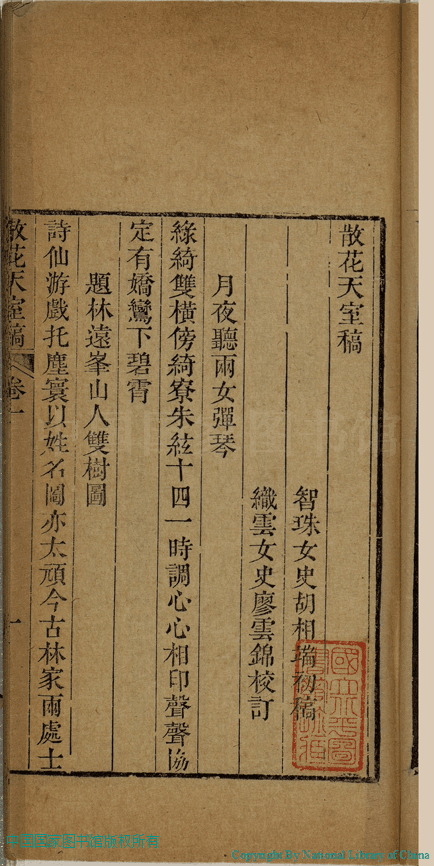 散花天室稿
智珠女史胡相端初稿
織雲女史廖雲錦校訂
月夜聽兩女彈琴
綠綺雙橫傍綺寮朱絃十四一時調心心相印聲聲協
定有嬌鸞下碧霄
題林遠峯山人雙樹圖
詩仙游戲托塵寰以姓名圖亦太頑今古林家兩處士
散花天室稿 卷一 一
中国国家图书馆版权所有
Copyright By National Library of China